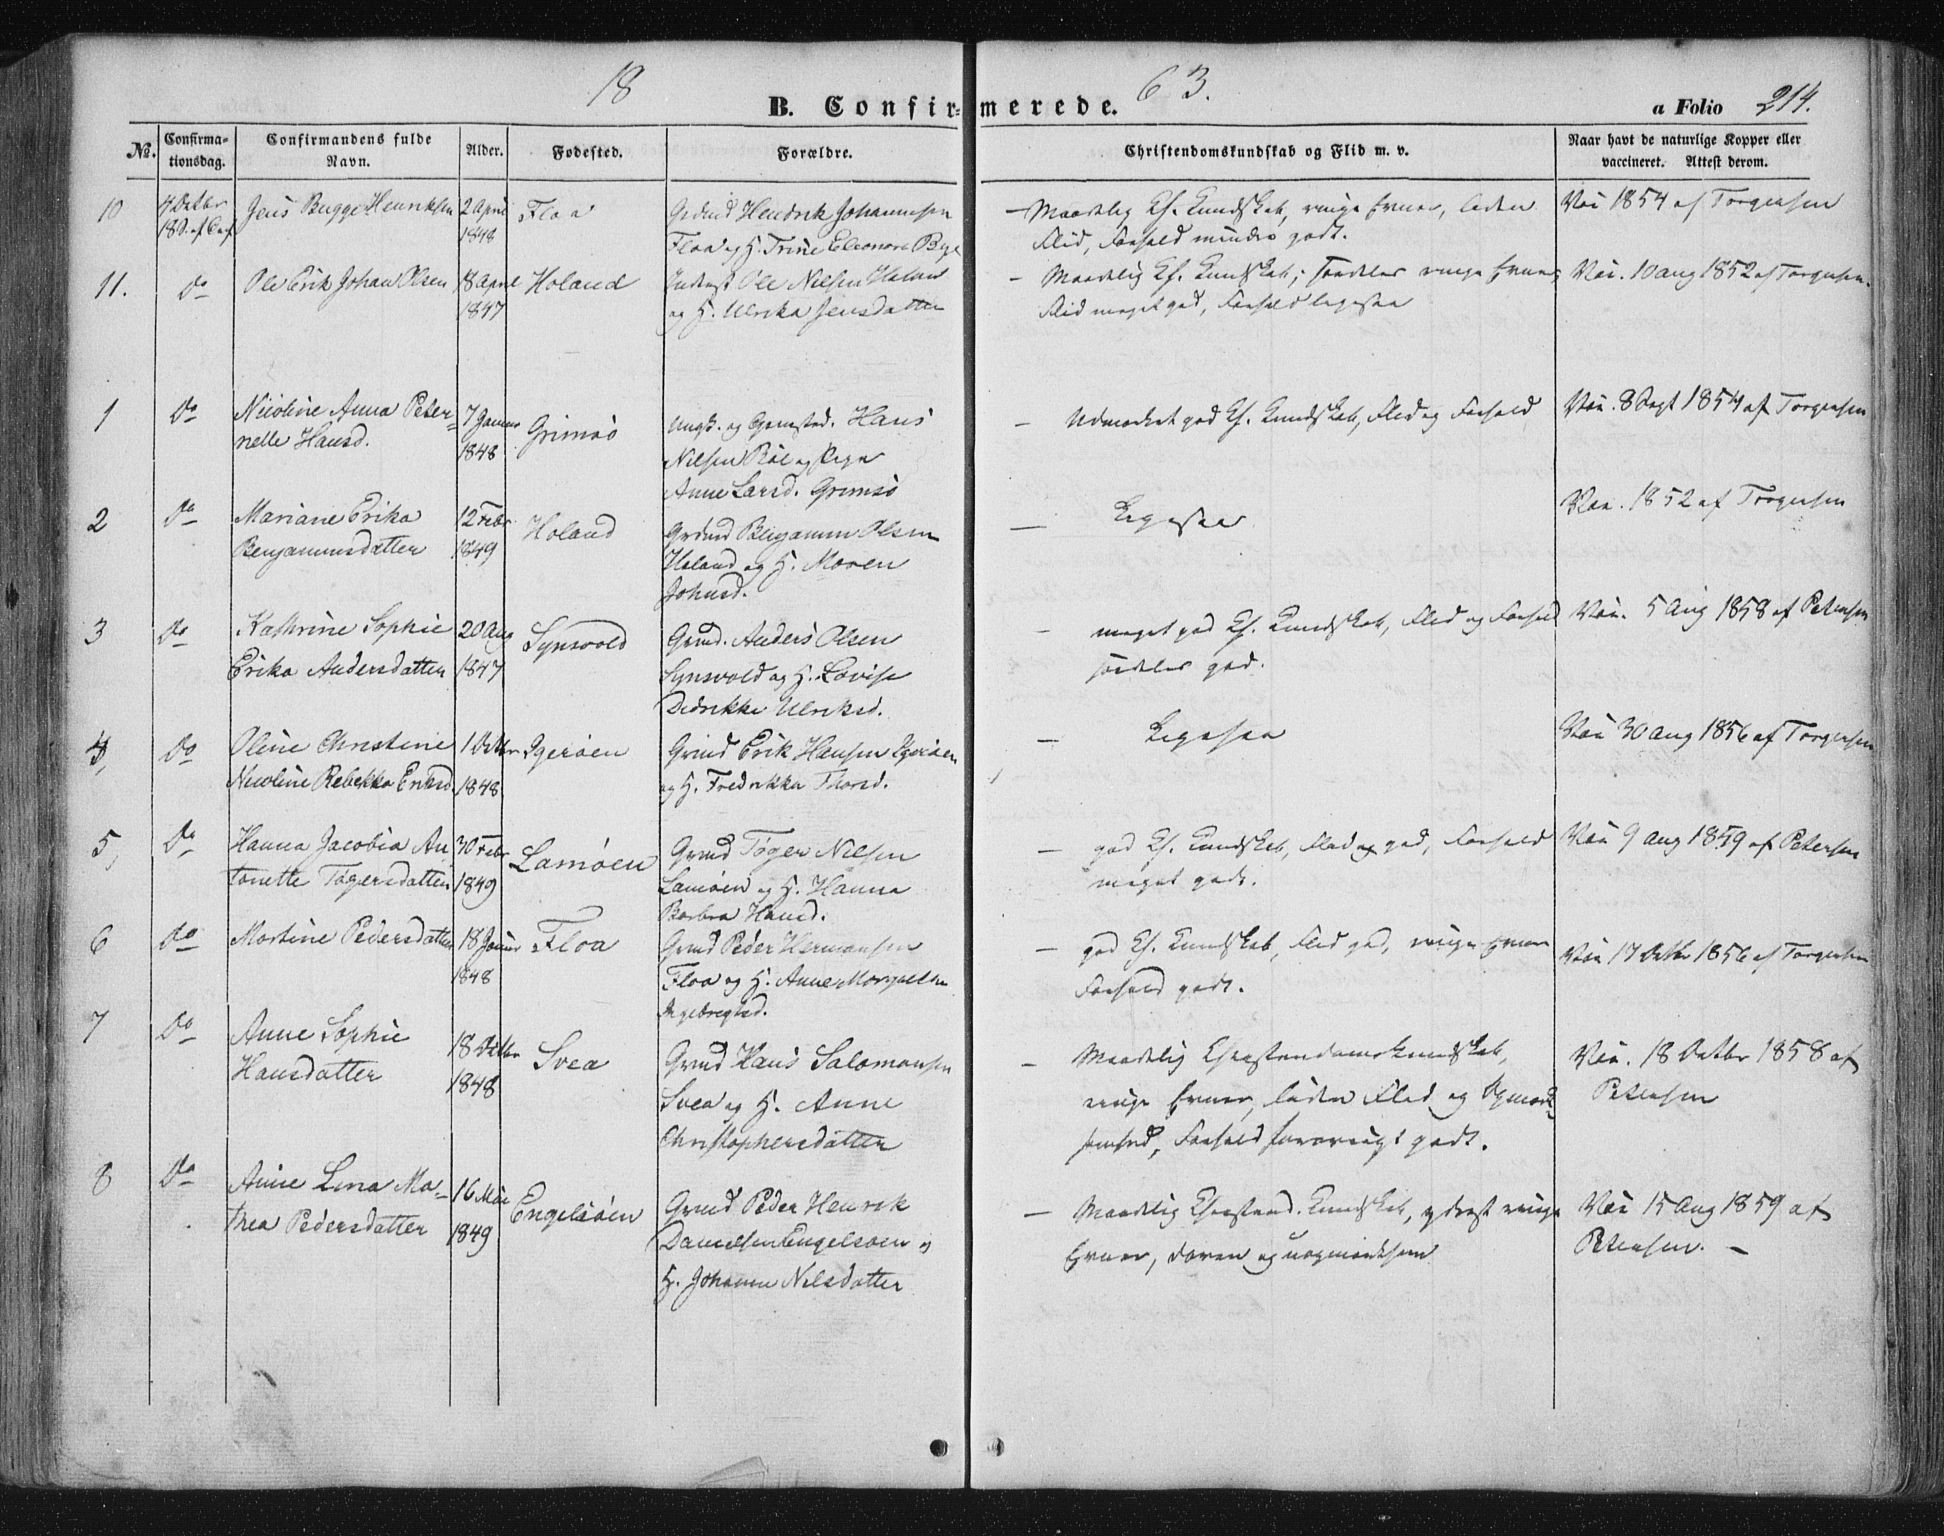 18 63.
B. Confirmerede. a Folio 214.
No. Confirmationsdag. Confirmandens fulde Navn. Alder. Fødested. Forældre. Christendomskundskab og Flid m. v. Naar havt de naturlige Kopper eller vaccineret. Attest derom.
10 4 Octbr Jens Bugge Henriksen 2 April Floa Grdmd Hendrik Johannsen — Maadelig Ch. Kundskab, ringe Evner, liden Vac 1854 af Torgersen
1848 Floa og H. Trine Eleonora Flid, Forhold mindre godt.
11. Do Ole Erik Johan Olsen 18 April Holand Inderst Ole Nilsen Holand — Maadelig Ch. Kundskab, ringe Evner, Vac. 10 aug 1852 af Torgersen
1847 og H. Ulrika Jensdatter Flid meget god, Forhold ligesaa
1 Do Nicoline Anna Peter- 7 Januar Grimsø Ungk. og Hans — Udmærket god Ch. Kundskab, Flid og Forhold Vac. 8 Sept 1854 af Torgersen
nelle Hansd. 1848 Nilsen og Pige
Anne Larsd. Grimsø
2 Do Mariane Erika 12 Febr Holand Grdmd Benjamin Olsen — Ligesaa Vac. 1852 af Torgersen
Benjaminsdatter 1849 Holand og H. Maren
Johnsd.
3 Do Kathrine Sophie 20 Aug Synsvold Grmd. Anders Olsen — meget god Ch. Kundskab, Flid og Forhold Vac. 5 Aug 1858 af Petersen
Erika Andersdatter 1847 Synsvold og H. Lovise særdeles god.
Didrikke Ulriksd.
4, Do Oline Christine 1 Octbr Igerøen Grmd Erik Hansen Igerøen — Ligesaa Vac 30 aug 1856 af Torgersen
Nicoline Rebekka Eriksd. 1848 og H. Fredrikka Thorsd.
5, Do Hanna Jacobia An 30 Febr Lamøen Grmd Tøger Nilsen — god Ch. Kundskab, Flid og god, Forhold Vac 9 aug 1859 af Petersen
tonette Tøgersdatter 1849 Lamøen og H. Hanna meget godt.
Barbra Hansd.
6 Do Martine Pedersdatter 18 Januar Floa Grmd Peder Hermansen — god Ch. Kundskab, Flid god, ringe Evner Vac 17 Octbr 1856 af Torgersen
1848 Floa og H. Anne Margrethe Forhold godt.
Ingebrigtsd.
7 Do Anne Sophie 18 Octbr Svea Grmd Hans Salomonsen — Maadelig Christendomskundskab, Vac. 18 Octbr 1858 af
Hansdatter 1848 Svea og H. Anne ringe Evner, liden Flid og Opmærk Petersen
Christophersdatter somhed, Forhold forøvrigt godt.
8 Do Anne Lena Ma- 16 Mai Engelsøen Grmd Peder Henrik — Maadelig Christend. Kundskab, yderst ringe Vac 15 Aug 1859 af
thea Pedersdatter 1849 Danielsen Engelsøen og Evner, doven og uopmærksom Petersen. —
H. Johanna Nilsdatter